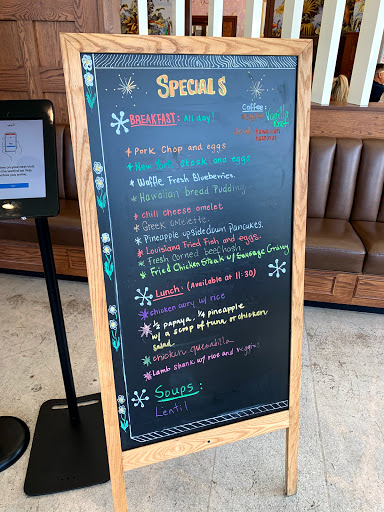 SPECIALS
Coffee:
Vanilla
BREAKFAST: All day!
Pork Chop and eggs
New York steak and eggs
Waffle Fresh Blueberries.
Hawaiian bread Pudding
chili cheese omelet
Greek omelette.
Pineapple upsidedown Pancakes.
Louisiana Fried Fish and eggs.
Fresh Corned beef hash
Fried Chicken Steak w/ Sausage Gravy
Lunch: (Available at 11:30)
chicken curry w/ rice
1/2 papaya. 1/4 pineapple
w/ a scoop of tuna or chicken
salad
chicken quesadilla
Lamb shank w/ rice and veggies.
Soups:
Lentil